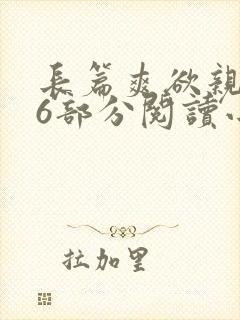 長篇爽欲親
6部分閱讀
拉加里